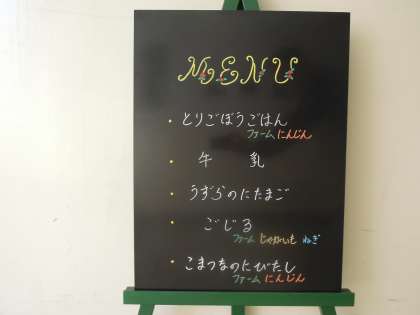 MENU
・とりごぼうごはん
ファーム にんじん
・牛 乳
・うずらのにたまご
・ごじる
ファーム じゃがいも ねぎ
・こまつなのにびたし
ファーム にんじん